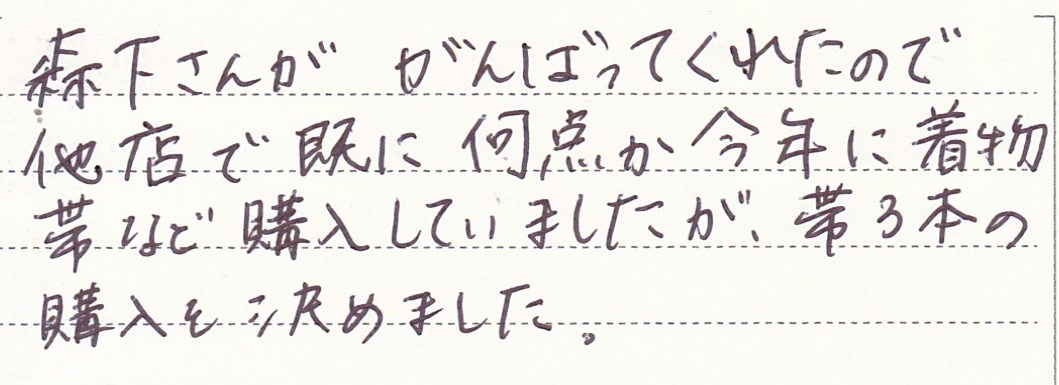 森下さんが がんばってくれたので
他店で既に何点か今年に着物
帯など購入していましたが、帯3本の
購入を決めました。